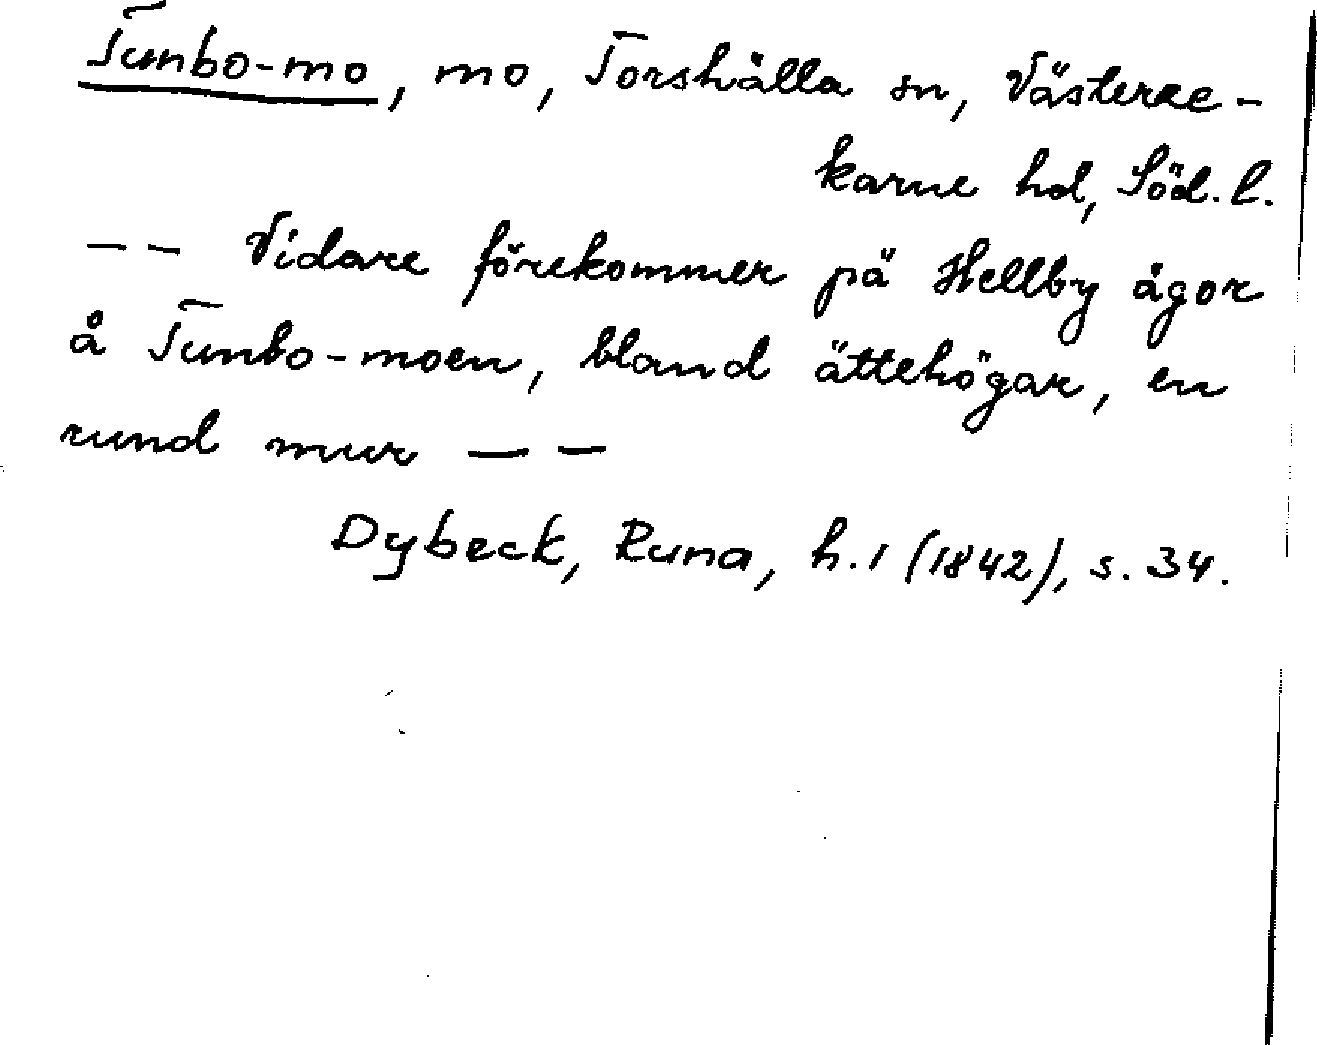 Tumbo-mo, mo, Torshälla sn, Västerre-
karne hd, Söd. l.
— — Vidare förekommer på Hellby ägor
å Tumbo-moen, bland ättehögar, en
rund mur — —
Dybeck, Runa, h. 1 (1842), s. 34.